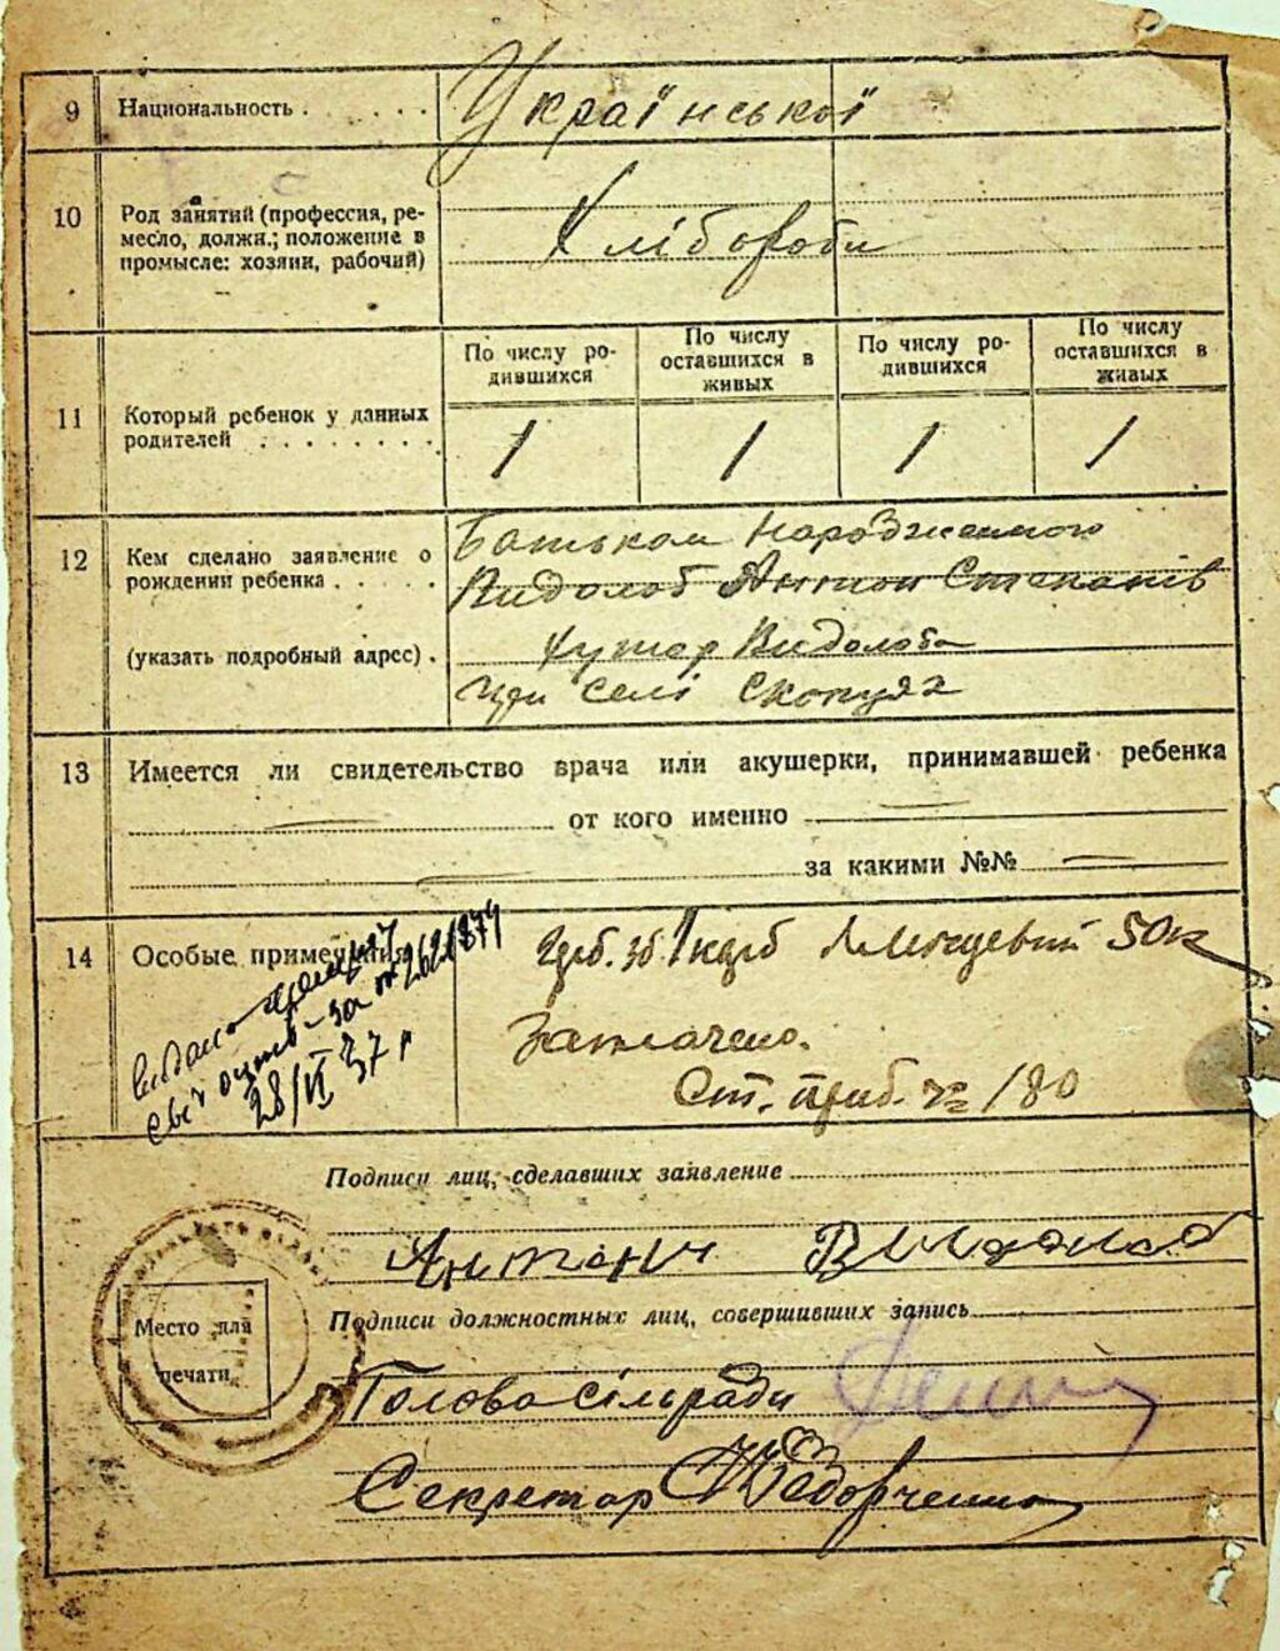 9 Национальность . . . . . . Української
10 Род занятий (профессия, ре-
месло, должн.; положение в
промысле: хозяин, рабочий)
Хлібороби
По числу ро-
дившихся
По числу
оставшихся в
живых
По числу ро-
дившихся
По числу
оставшихся в
живых
11 Который ребенок у данных
родителей . . . . . . . .
1 1 1 1
12 Кем сделано заявление о
рождении ребенка . . . . .
(указать подробный адрес) .
Батьком народженного
Видолоб Антон Степанів
Хутор Видолоба
при селі Скопцях
13 Имеется ли свидетельство врача или акушерки, принимавшей ребенка
от кого именно
за какими №№
14 Особые примечания
видано
28/VI 37 р
50к
Заплачено.
Ст. приб. № 180
Подписи лиц, сделавших заявление
Антон Видолоб
Подписи должностных лиц, совершивших запись
Место для
печати
Голова сільради
Секретар Федорченко